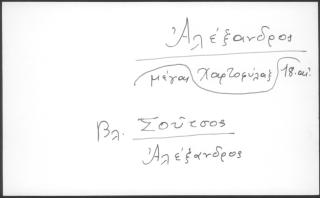 Ἀλέξανδρος
μέγας Χαρτοφύλαξ 18. αἰ.
Βλ. Σοῦτσος
Ἀλέξανδρος